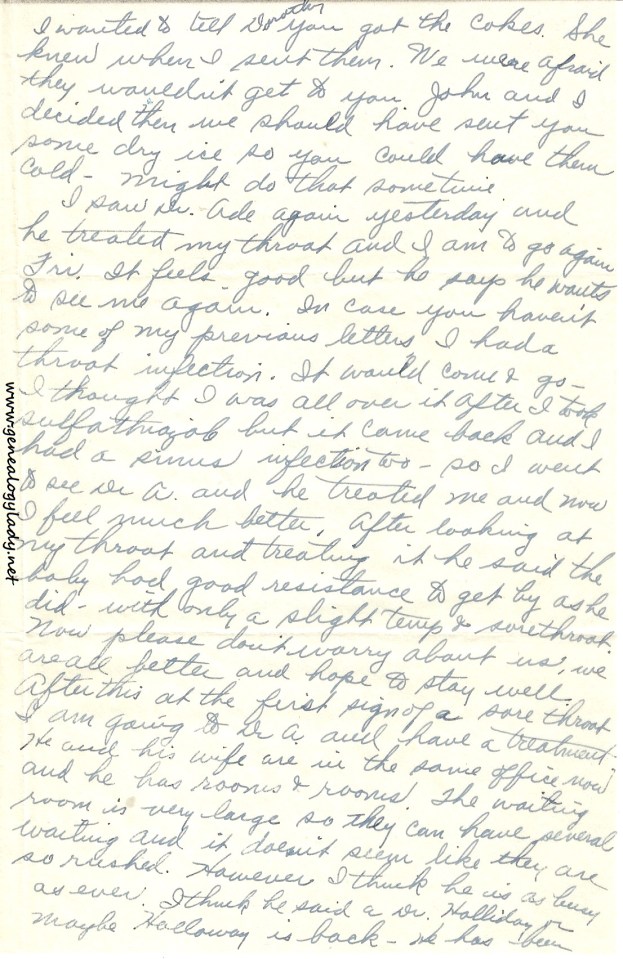 I wanted to tell Dorothy you got the cokes. She
knew when I sent them. We were afraid
they wouldn't get to you. John and I
decided then we should have sent you
some dry ice so you could have them
cold - might do that sometime.
I saw Dr. Ade again yesterday and
he treated my throat and I am to go again
Fri. It feels good but he says he wants
to see me again. In case you haven't
some of my previous letters I had a
throat infection. It would come & go -
I thought I was all over it after I took
sulfathiazole but it came back and I
had a sinus infection too - so I went
to see Dr A. and he treated me and now
I feel much better. After looking at
my throat and treating it he said the
baby had good resistance to get by as he
did - with only a slight temp & sorethroat.
Now please don't worry about us, we
are all better and hope to stay well.
After this at the first sign of a sore throat
I am going to Dr A. and have a treatment.
He and his wife are in the same office now
and he has rooms & rooms. The waiting
room is very large so they can have several
waiting and it doesn't seem like they are
so rushed. However I think he is as busy
as ever. I think he said a Dr. Holliday or
maybe Holloway is back - He has been
www.genealogylady.net